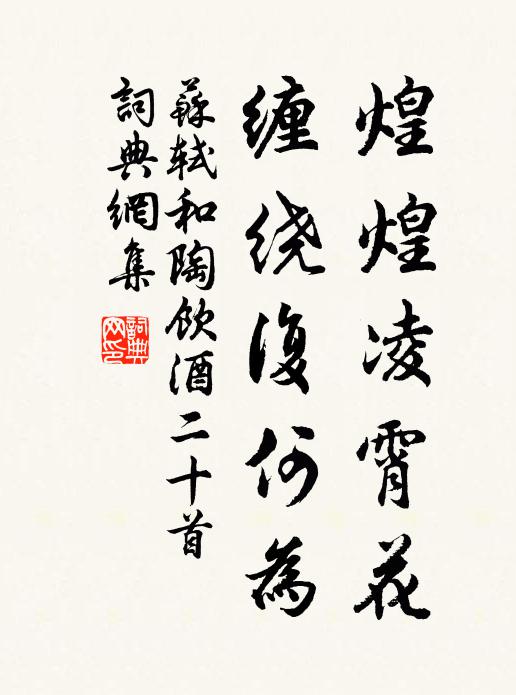 煌煌凌霄花
缠绕復何為
蘇軾和陶飲酒二十首
詞典網集
詞典网印